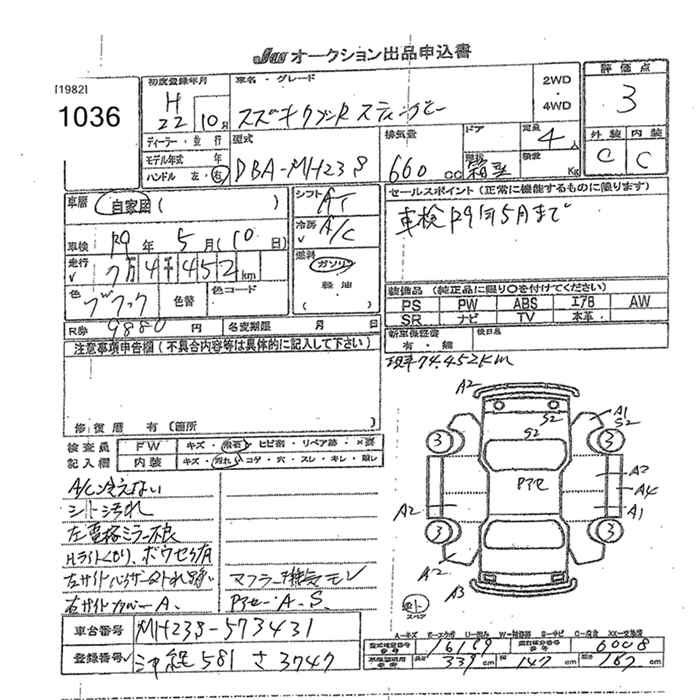 JAA オークション出品申込書
[1982]
1036
初度登録年月
H
22 10月
車名・グレード
スズキ ワゴンR スティングレー
2WD
・
4WD
評価点
3
ディーラー・並行
モデル年式 年
ハンドル 左・右
型式
DBA-MH23S
排気量
660 cc
ドア
定員
4人
形状
箱型
積載
Kg
外装 内装
C C
車歴
自家用 ( )
シフト
AT
セールスポイント (正常に機能するものに限ります)
車検R9年5月まで
車検 R9年 5月(10日)
冷房
A/C
走行
7万4千452km
燃料
ガソリン
軽油
色
ブラック
色替
色コード
装備品 (純正品に限り○を付けてください)
PS PW ABS エアB AW
SR ナビ TV 本革
R券 9880 円
名変期限 月 日
新車保証書
有・無
後日品
注意事項申告欄 (不具合内容等は具体的に記入して下さい)
現車74.452km
修復歴 有 (箇所 )
検査員
記入欄
FW キズ・飛石・ヒビ割・リペア跡・×要
内装 キズ・汚れ・コゲ・穴・スレ・キレ・
A/C冷えない
シート汚れ
左電格ミラー不良
Hライトくもり、
マフラー排気モレ
右サイドカバーA.
Pアセ-A.S.
A2
A1
S2
S2
S2
3
3
Pアセ
A3
A4
A2
A1
3
3
A2
A2
A3
スペア
車台番号 MH23S-573431
登録番号 581 さ 3747
A=キズ E=エクボ U=凹み W=補修跡 S=サビ C=腐食 XX=交換済
16169
6008
長さ 339 cm 幅 147 cm 高さ 167 cm